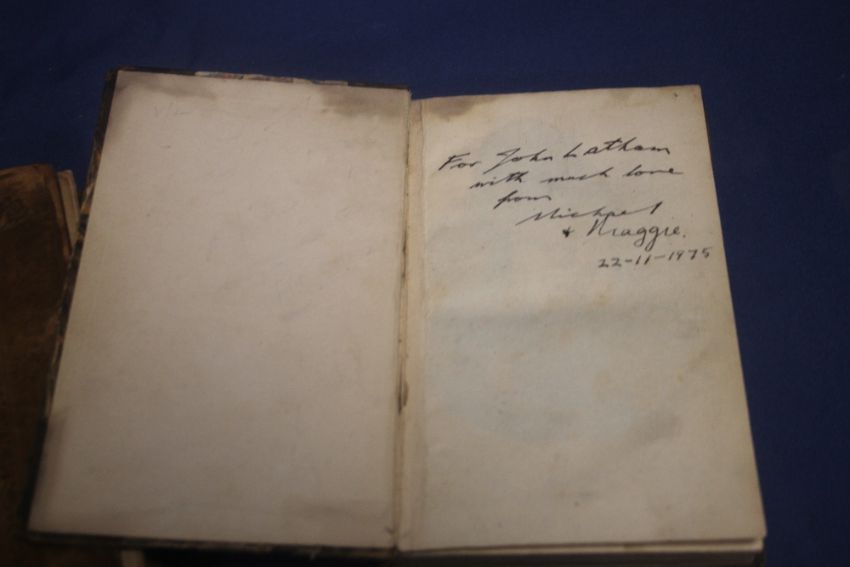 For John Latham
with much love
from
Michael
+ Maggie.
22-11-1975